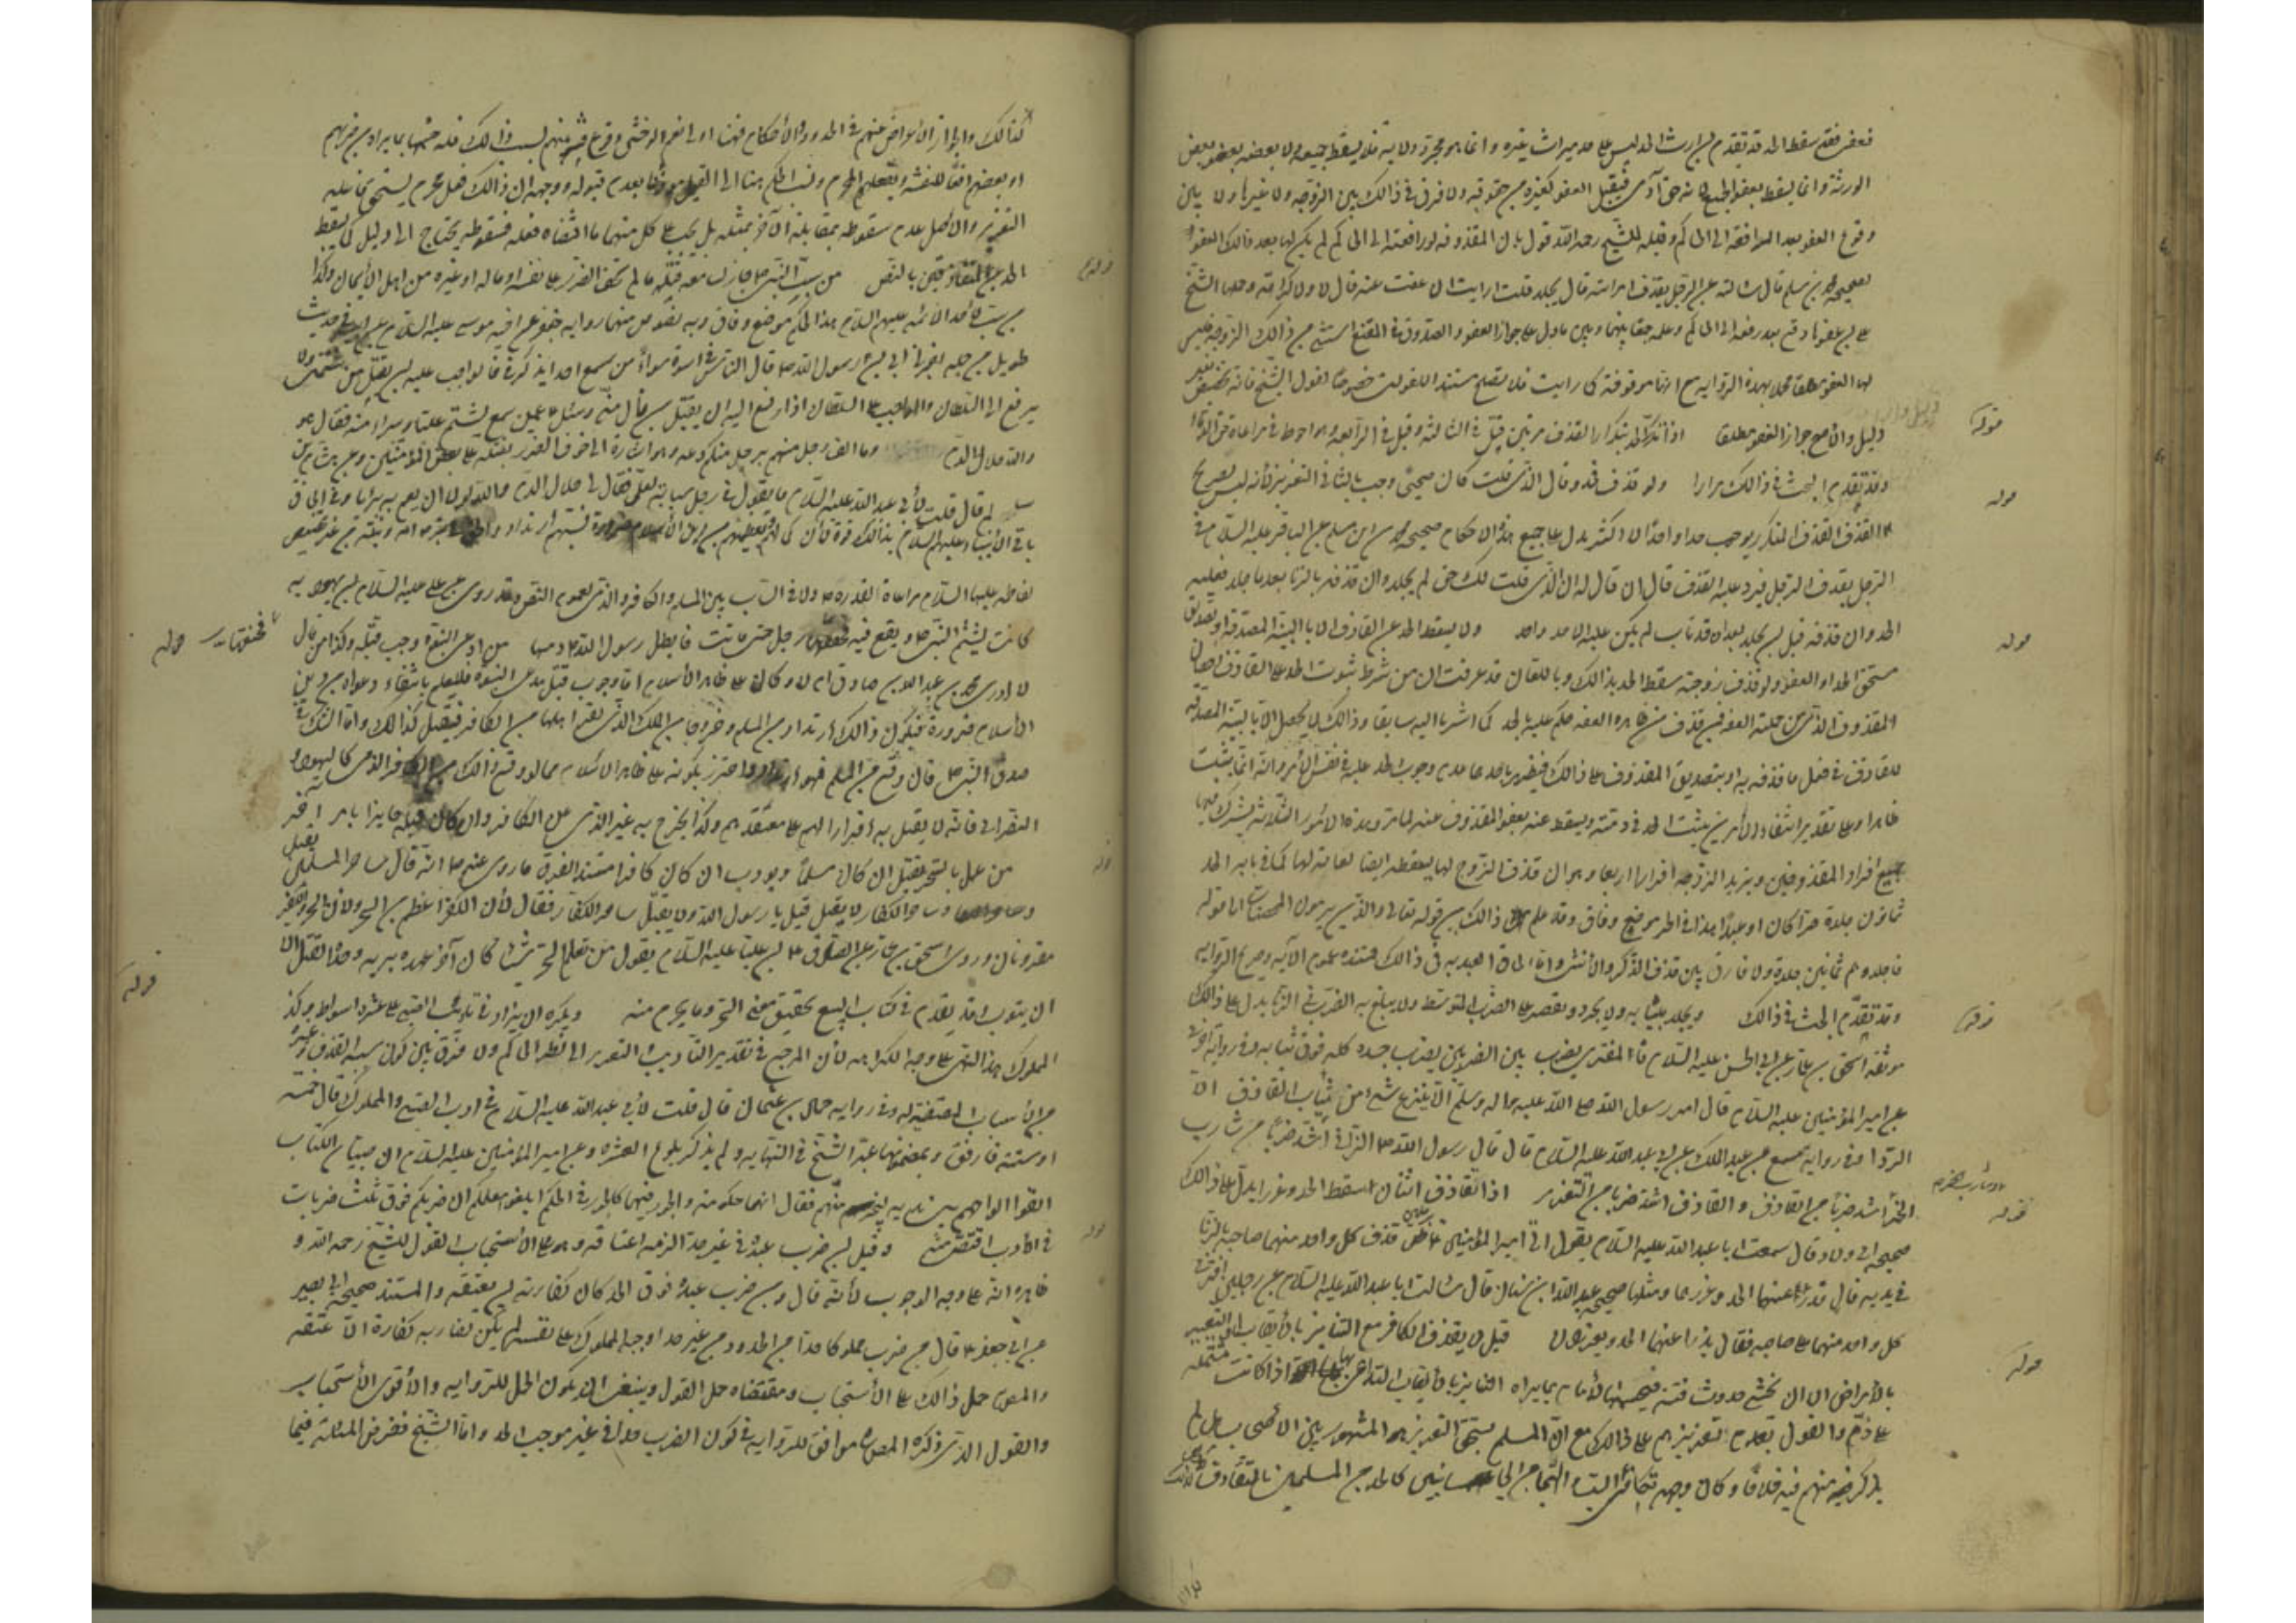 فعفى فقد سقط الحد قد تقدم ان ارث الحد ليس على حد ميراث غيره وانما هو مجرد ولاية فلا يسقط جميعه ولا بعضه بعفو بعض
الورثة وانما يسقط بعفو الجميع لانه حق آدمي فيقبل العفو كغيره من حقوقه ولا فرق في ذالك بين الزوجة ولا غيرها ولا بين
وقوع العفو بعد المرافعة الى الحاكم وقبله وللشيخ رحمه الله قول بان المقذوفة لو رافعته الى الحاكم لم يكن لها بعد ذالك العفو
لصحيحة محمد بن مسلم قال سالته عن الرجل يقذف امراته قال يجلد قلت ارايت ان عفت عنه قال لا ولا كرامة وحملها الشيخ
على ان عفوها وقع بعد رفعه الى الحاكم وعلمه جمعا بينها وبين ما دل على جواز العفو والصدوق في المقنع استثنى من ذالك الزوجة فليس
لها العفو مطلقا عملا بهذه الرواية مع انها موقوفة كما رايت فلا يصلح مستندا للقولين خصوصا لقول الشيخ فانه تخصيص بغير
دليل والاصح جواز العفو مطلقا اذا تكرر الحد بتكرار القذف مرتين قتل في الثالثة وقيل في الرابعة وهو احوط في مراعاة حق الدماء
وقد تقدم البحث في ذالك مرارا ولو قذف فحد وقال الذي قلت كان صحيحا وجب بالثاني التعزير لانه ليس بصريح
القذف المتكرر يوجب حدا واحدا لا اكثر يدل على جميع هذه الاحكام صحيحة محمد بن مسلم عن الباقر عليه السلام في
الرجل يقذف الرجل فيرد عليه القذف قال ان قال له ان الذي قلت لك حق لم يجلد وان قذفه بالزنا بعد ما جلد فعليه
الحد وان قذفه قبل ان يجلد بعشر قذفات لم يكن عليه الا حد واحد ولا يسقط الحد عن القاذف الا بالبينة المصدقة او تصديق
مستحق الحد او العفو ولو قذف زوجته سقط الحد بذالك وباللعان قد عرفت ان من شرط ثبوت الحد على القاذف احصان
المقذوف الذي من جملته العفة فمن قذف من ظاهره العفة حكم عليه بالحد كما اشرنا اليه سابقا وذالك لا يحصل الا بالبينة المصدقة
للقاذف في فعل ما قذفه به او بتصديق المقذوف على ذالك فيظهر باحدهما عدم وجوب الحد عليه في نفس الامر وانه انما يثبت
ظاهرا وعلى تقدير انتفاء الامرين يثبت الحد في ذمته ويسقط عنه بعفو المقذوف عنه لما تر وهذه الامور الثلاثة يشترك فيها
جميع افراد المقذوفين ويزيد الزوجة افرارا اربعا وهو ان قذف الزوج لها يسقطه ايضا لعانه لها كما في بابه الحد
ثمانون جلدة حرا كان او عبدا هذا في الحر موضع وفاق وقد علم ذالك من قوله تعالى والذين يرمون المحصنات الى قوله
فاجلدوهم ثمانين جلدة ولا فارق بين قذف الذكر والانثى واما الحاق العبد به في ذالك فمستنده عموم الآية وصريح الرواية
وقد تقدم البحث في ذالك ويجلد بثيابه ولا يجرد ويقتصر على الضرب المتوسط ولا يبلغ به الضرب في الزنا يدل على ذالك
موثقة اسحق بن عمار عن ابي الحسن عليه السلام قال المفتري يضرب بين الضربين يضرب جسده كله فوق ثيابه وفي رواية اخرى
عن امير المؤمنين عليه السلام قال امر رسول الله صلى الله عليه وآله وسلم ان لا ينزع شيء من ثياب القاذف الا
الردا وفي رواية مسمع بن عبد الملك عن ابي عبد الله عليه السلام قال قال رسول الله ص الزاني اشد ضربا من شارب
الخمر اشد ضربا من القاذف والقاذف اشد ضربا من التعزير اذا تقاذف اثنان سقط الحد وعزرا يدل على ذالك
صحيحة ابي ولاد قال سمعت ابا عبد الله عليه السلام يقول اتي امير المؤمنين برجلين قذف كل واحد منهما صاحبه بالزنا
في بدنه قال فدرا عنهما الحد وعزرهما ومثلها صحيحة عبد الله ابن سنان قال سالت ابا عبد الله عليه السلام عن رجلين افترى
كل واحد منهما على صاحبه فقال يدرا عنهما الحد ويعزران قيل لا يعزر الكفار مع التنابز بالألقاب والتعيير
بالامراض الا ان يخشى حدوث فتنة فيحسمها الامام بما يراه التنابز بالألقاب التداعي بها اذا كانت مشتملة
على ذم والقول بعدم تعزيرهم على ذالك مع ان المسلم يستحق التعزير هو المشهور بين الاصحاب بل لم
يذكر فيه منهم فيه خلافا وكان وجهه تكافئ السب والهجاء من الجانبين كالحد من المسلمين بالتقاذف
قوله
قوله
قوله
قوله
قوله
قوله
كذالك والى جواز الاعراض عنهم في الحدود والاحكام فهنا اولى نعم لو خشي وقوع فتنة منهم بسبب ذالك فله حسمها بما يراه من ضربهم
او بعضهم
التعزير والاصل عدم سقوطه بمقابلة الآخر بمثله بل يجب على كل منهما ما اقتضاه فعله فسقوطه يحتاج الى دليل كما يسقط
الحد عن المتقاذفين بالنص من سب النبي ص جاز لسامعه قتله ما لم يخف الضرر على نفسه او ماله او غيره من اهل الايمان وكذا
من سب احد الائمة عليهم السلام هذا الحكم موضع وفاق وبه نصوص منها رواية علي بن جعفر عن اخيه موسى عليه السلام عن ابيه في حديث
طويل من جملته اخبرني ابي ان رسول الله ص قال الناس في اسوة سواء من سمع احدا يذكرني فالواجب عليه ان يقتل من شتمني ولا
يرفع الى السلطان والواجب على السلطان اذا رفع اليه ان يقتل من نال مني وسئل ع عمن سمع يشتم عليا ويبرء منه فقال هو
والله حلال الدم وما الف رجل منهم برجل منكم دعه وهو اشارة الى خوف الضرر بقتله على بعض المؤمنين وعن هشام بن
سالم قال قلت لابي عبد الله عليه السلام ما يقول في رجل سبابة لعلي فقال لي حلال الدم والله لولا ان يعم به بريا وفي الحاق
باقي الانبياء عليهم السلام بذالك قوة لان كمالهم وتعظيمهم من دين الاسلام ضرورة فسبهم ارتداد
لفاطمة عليها السلام مراعاة لقدره ص ولا فرق في الساب بين المسلم والكافر والذمي لعموم النص وقد روي عن علي عليه السلام ان يهودية
كانت تشتم النبي ص ويقع فيه فخنقها رجل حتى ماتت فابطل رسول الله ص دمها من ادعى النبوة وجب قتله وكذا من قال
لا ادري محمد بن عبد الله ص صادق ام لا وكان على ظاهر الاسلام اما وجوب قتل مدعي النبوة فللعلم بانتفاء دعواه من دين
الاسلام ضرورة فيكون ذالك ارتدادا من المسلم وخروجا من الملل الذي يقر اهلها من الكافر فيقتل كذالك واما الشك في
صدق النبي ص فان وقع من المسلم فهو ارتداد واحترز بكونه على ظاهر الاسلام عما لو وقع ذالك من الكافر الذمي كاليهودي
النصراني فانه لا يقتل به اقرارا لهم على معتقدهم وكذا يخرج به غير الذمي من الكفار وان كان قتله جايزا بامر اخر
من عمل بالسحر يقتل ان كان مسلما ويؤدب ان كان كافرا مستند الفرق ما روي عنه ص انه قال ساحر المسلمين يقتل
وساحر الكفار لا يقتل قيل يا رسول الله ولم لا يقتل ساحر الكفار فقال لان الكفر اعظم من السحر ولان السحر والكفر
مقرونان وروى اسحق بن عمار عن الصادق ع ان عليا عليه السلام يقول من تعلم السحر شيئا كان آخر عهده بربه وحده القتل الا
ان يتوب وقد تقدم في كتاب البيع تحقيق معنى السحر وما يحرم منه ويكره ان يزاد في تاديب الصبي على عشرة اسواط وكذا
المملوك هذا النهي على وجه الكراهة لان المرجع في تقدير التاديب والتعزير الى نظر الحاكم ولا فرق بين كون سببه القذف وغيره
من الاسباب المقتضية له وفي رواية حماد بن عثمان قال قلت لابي عبد الله عليه السلام في ادب الصبي والمملوك قال خمسة
او ستة فارفق وبمضمونها عبر الشيخ في النهاية ولم يذكر بلوغ العشرة وعن امير المؤمنين عليه السلام ان صبيان الكتاب
القوا الواحهم بين يديه ليخير بينهم فقال انها حكومة والجور فيها كالجور في الحكم ابلغوا معلمكم ان ضربكم فوق ثلث ضربات
في الادب اقتص منه وقيل ان ضرب عبده في غير حد حدا لزمه اعتاقه وهو على الاستحباب القول للشيخ رحمه الله و
ظاهره انه على وجه الوجوب لانه قال ومن ضرب عبده فوق الحد كان كفارته ان يعتقه والمستند صحيحة ابي بصير
عن ابي جعفر ع قال من ضرب مملوكا حدا من الحدود من غير حد اوجبه المملوك على نفسه لم يكن لضاربه كفارة الا عتقه
والمص حمل ذالك على الاستحباب ومقتضاه حمل القول وينبغي ان يكون الحمل للرواية والاقوى الاستحباب
والقول الذي ذكره المص موافق للرواية في كون الضرب حدا في غير موجب الحد واما الشيخ ففرض المسئلة فيما
قوله
قوله
قوله
قوله